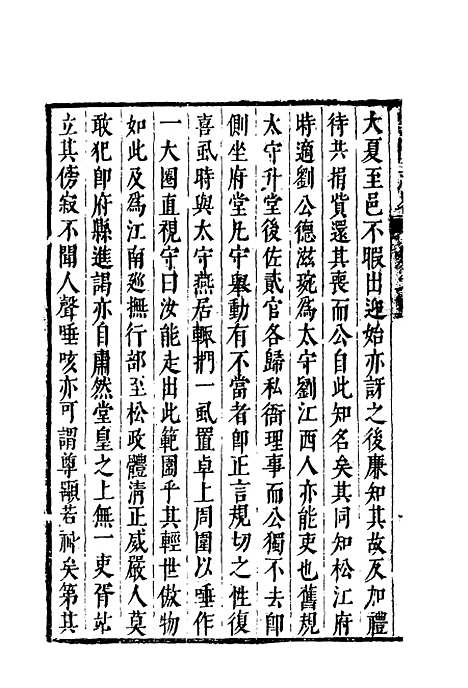 大夏至邑不暇出迎始亦訝之後廉知其故反加禮
待共捐貲還其喪而公自此知名矣其同知松江府
時適劉公德滋琬為太守劉江西人亦能吏也舊規
太守升堂後佐貳官各歸私衙理事而公獨不去即
側坐府堂凡守舉動有不當者即正言規切之性復
喜虱時與太守燕居輒捫一虱置卓上周圍以唾作
一大圈直視守曰汝能走出此範圍乎其輕世傲物
如此及為江南廵撫行部至松政體清正威嚴人莫
敢犯即府縣進謁亦自肅然堂皇之上無一吏胥站
立其傍寂不聞人聲唾咳亦可謂尊顯若神矣第其